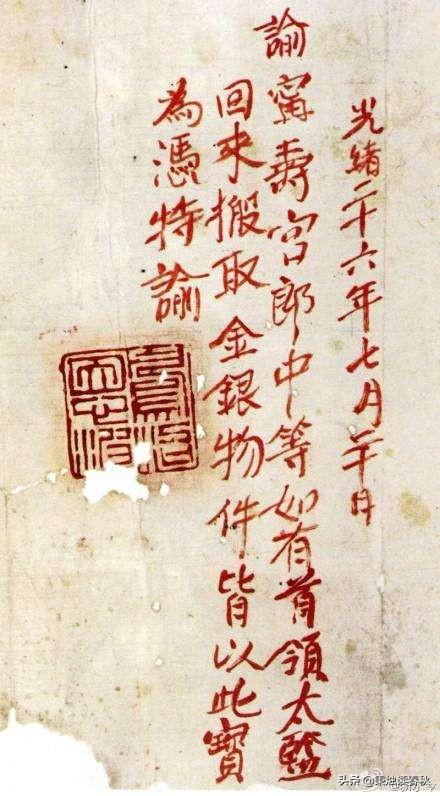 光緒二十六年七月二十日
諭甯壽宮郎中等如有首領太監
回來搬取金銀物件皆以此寶
為憑特諭
头条 @